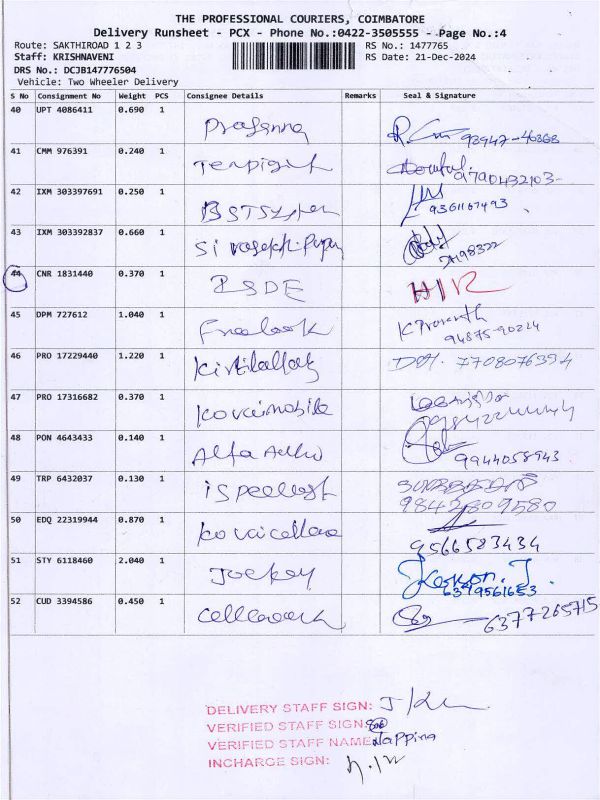 THE PROFESSIONAL COURIERS, COIMBATORE
Delivery Runsheet - PCX - Phone No.:0422-3505555 - Page No.:4
Route: SAKTHIROAD 1 2 3 RS No.: 1477765
Staff: KRISHNAVENI RS Date: 21-Dec-2024
DRS No.: DCJB147776504
Vehicle: Two Wheeler Delivery
S No Consignment No Weight PCS Consignee Details Remarks Seal & Signature
40 UPT 4086411 0.690 1
Prasanna
41 CMM 976391 0.240 1
9790432103
42 IXM 303397691 0.250 1
9361167493
43 IXM 303392837 0.660 1
44 CNR 1831440 0.370 1
45 DPM 727612 1.040 1
94875-90224
46 PRO 17229440 1.220 1
7708076394
47 PRO 17316682 0.370 1
Kovaimobile
48 PON 4643433 0.140 1
Alfa
9944058943
49 TRP 6432037 0.130 1
9842809580
50 EDQ 22319944 0.870 1
9566583434
51 STY 6118460 2.040 1
Jockey
6379561653
52 CUD 3394586 0.450 1
6377265715
DELIVERY STAFF SIGN:
VERIFIED STAFF SIGN:
VERIFIED STAFF NAME:
INCHARGE SIGN: